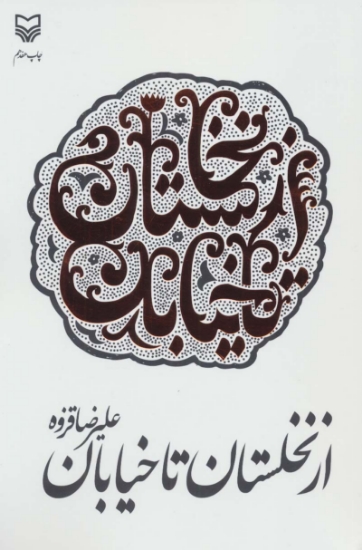 چاپ هفدهم
از نخلستان تا خیابان
علیرضا قزوه
از نخلستان تا خیابان